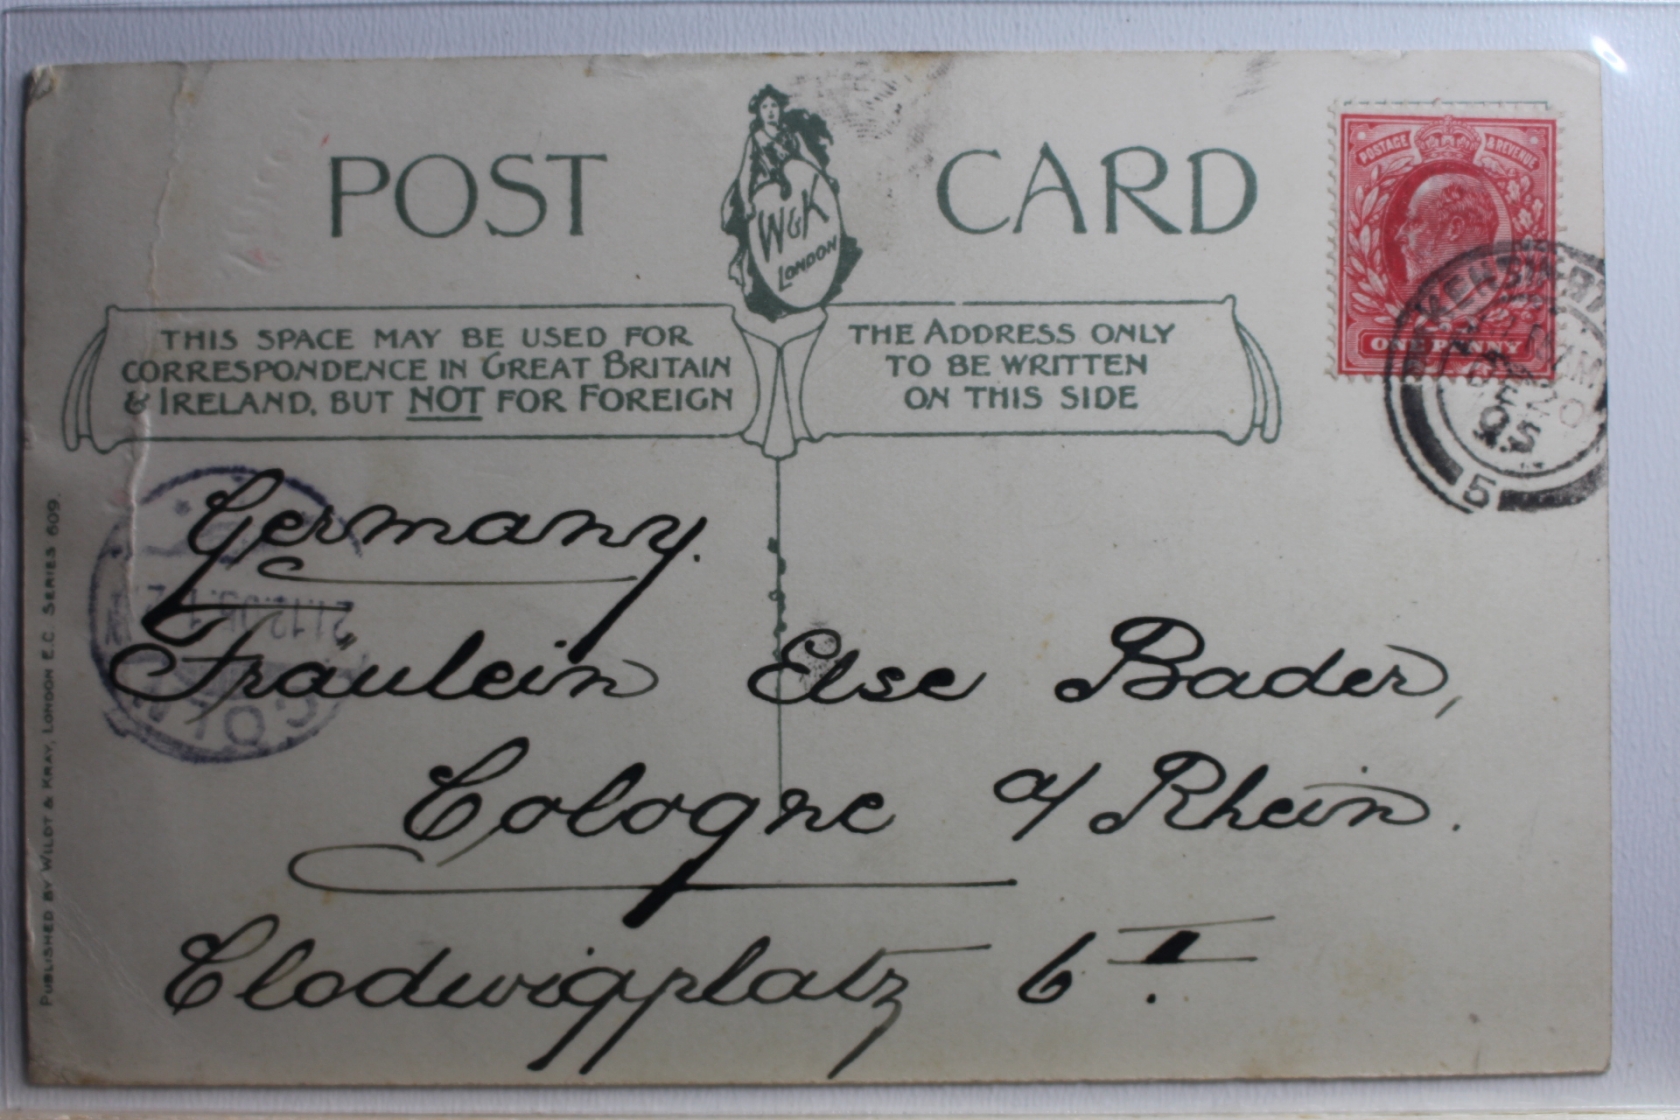 POST CARD
W&K
LONDON
POSTAGE & REVENUE
ONE PENNY
THIS SPACE MAY BE USED FOR
CORRESPONDENCE IN GREAT BRITAIN
& IRELAND, BUT NOT FOR FOREIGN
THE ADDRESS ONLY
TO BE WRITTEN
ON THIS SIDE
5
Germany.
Fräulein Else Bader,
Cologne a/ Rhein.
Clodwigplatz 6 I.
PUBLISHED BY WILDT & KRAY, LONDON E.C. SERIES 609.